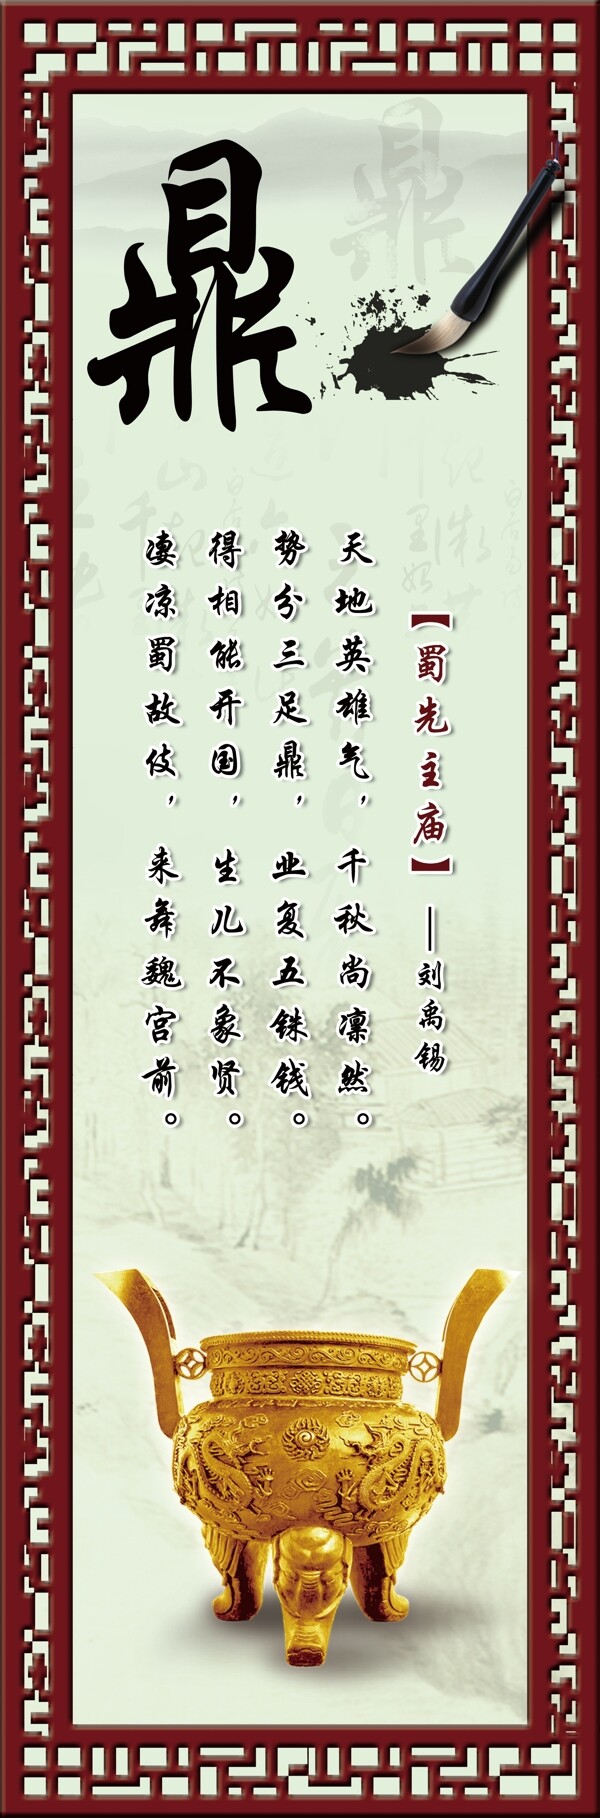 鼎
【蜀先主庙】——刘禹锡
天地英雄气，千秋尚凛然。
势分三足鼎，业复五铢钱。
得相能开国，生儿不象贤。
凄凉蜀故伎，来舞魏宫前。